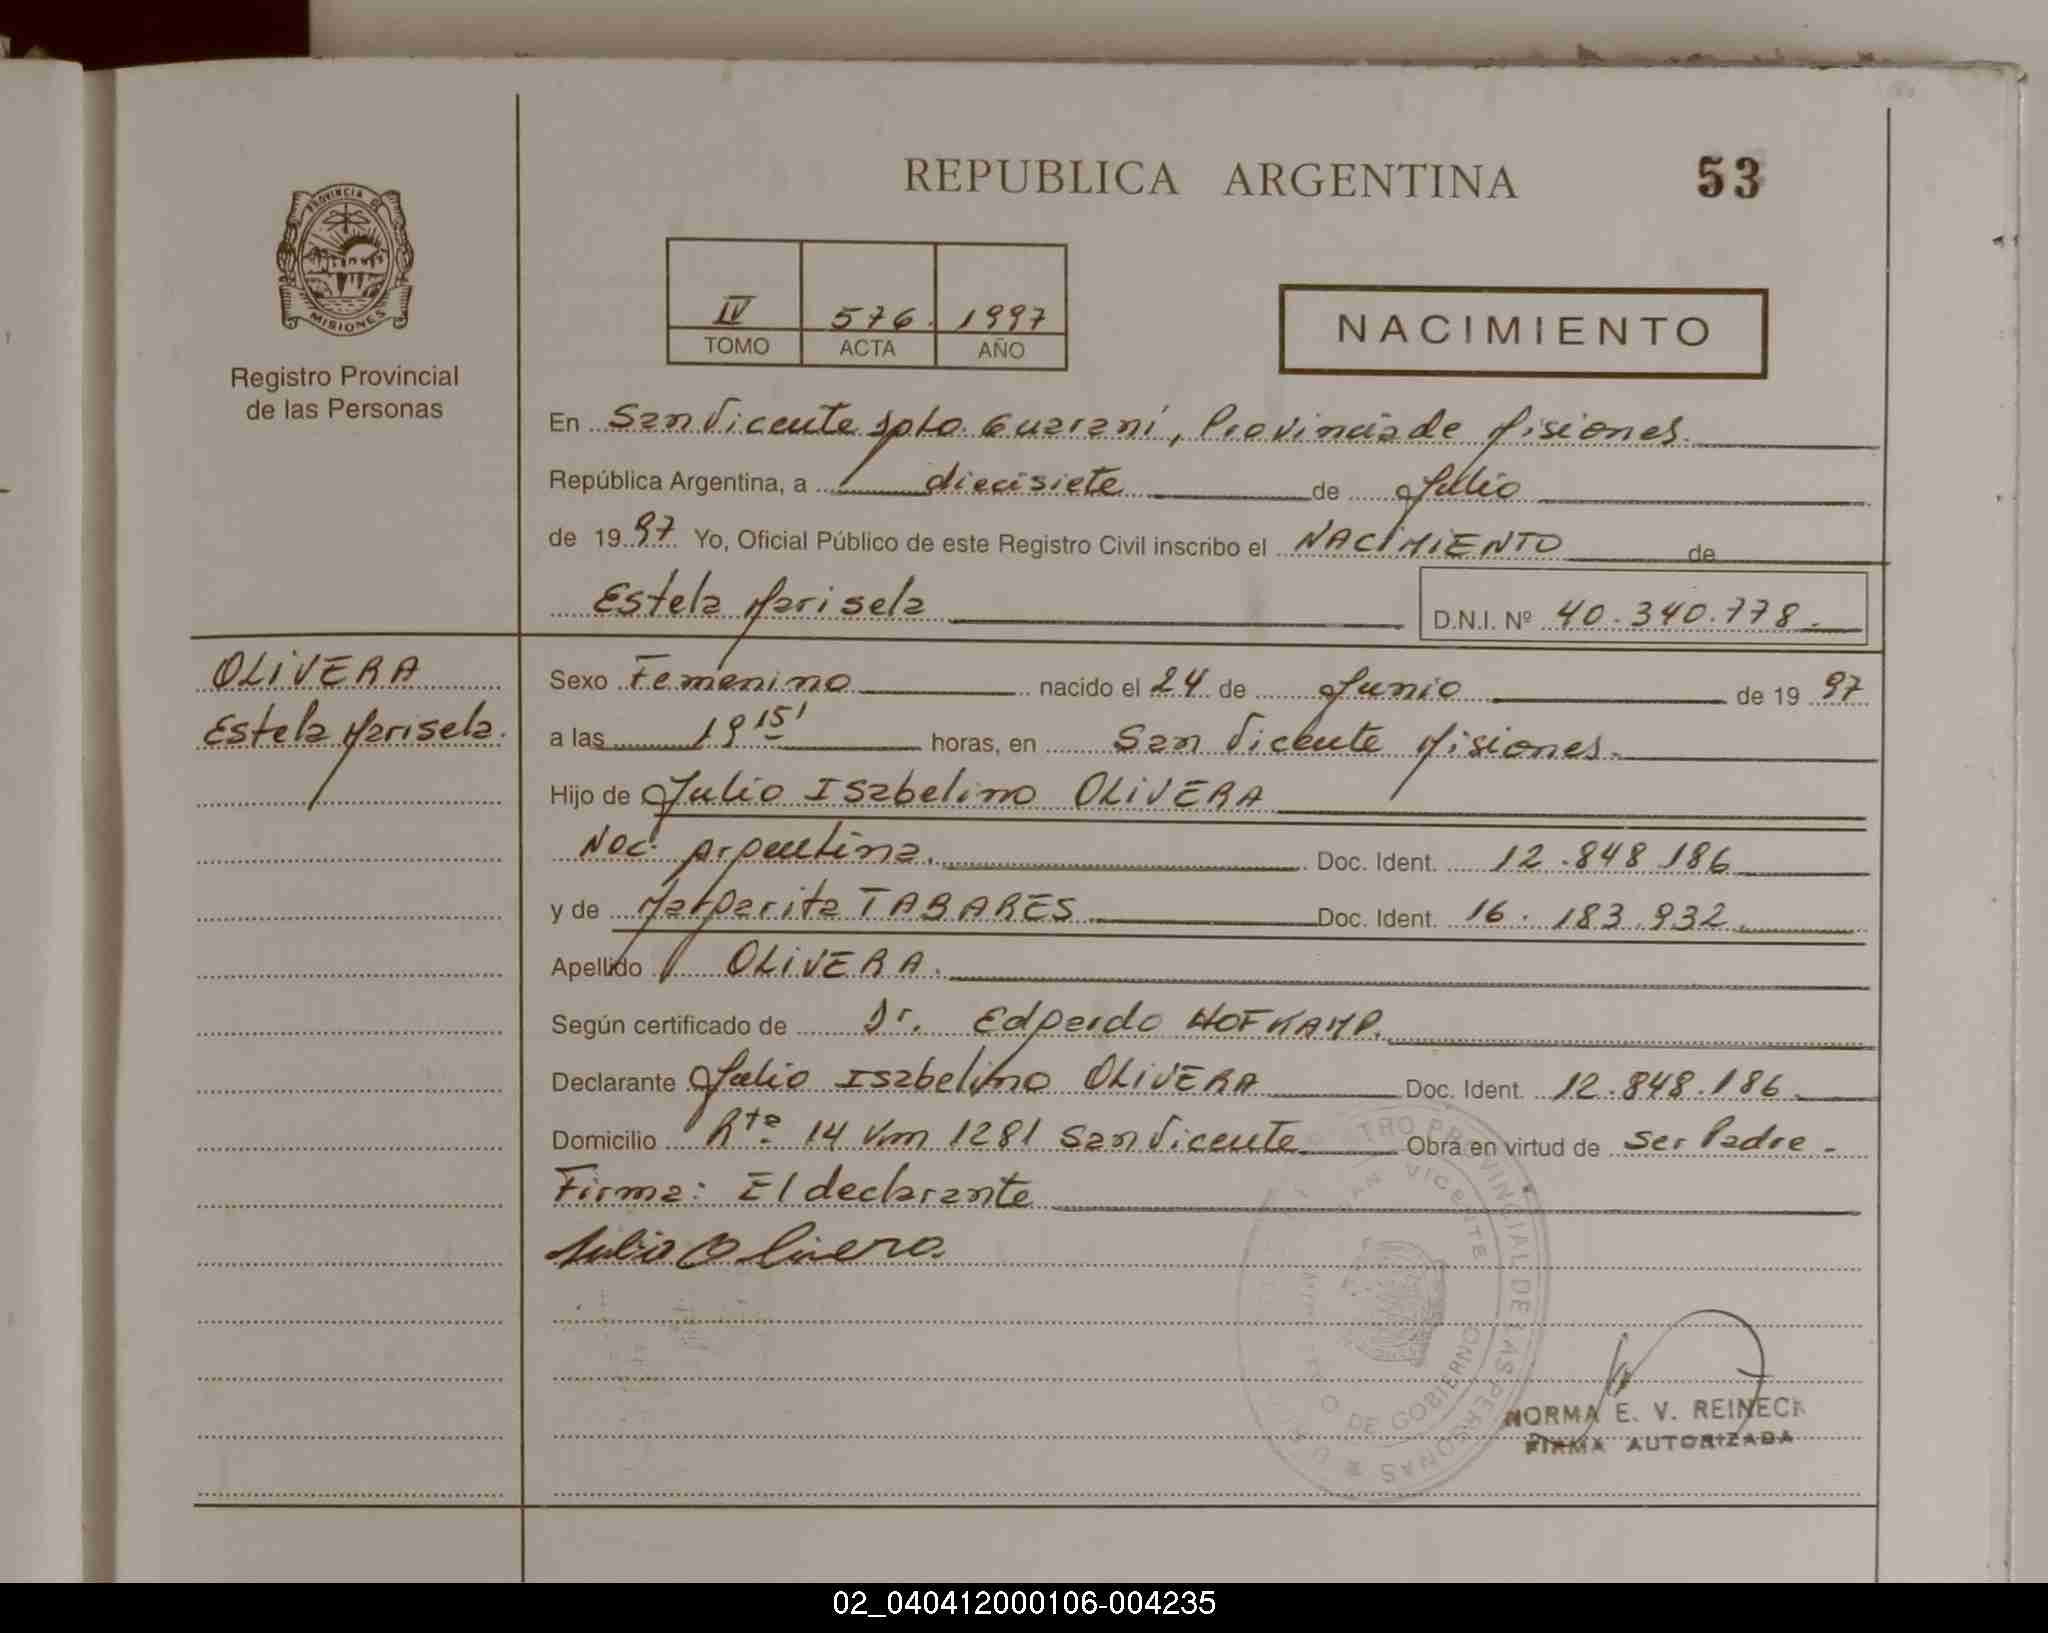 REPUBLICA ARGENTINA
53
PROVINCIA DE
MISIONES
Registro Provincial
de las Personas
IV 576. 1997
TOMO ACTA AÑO
NACIMIENTO
En San Vicente Dpto. Guaraní, Provincia de Misiones.
República Argentina, a diecisiete de Julio
de 1997 Yo, Oficial Público de este Registro Civil inscribo el NACIMIENTO de
Estela Marisela D.N.I. Nº 40.340.778.
OLIVERA
Estela Marisela.
Sexo Femenino nacido el 24 de Junio de 19 97
a las 19 15' horas, en San Vicente Misiones.
Hijo de Julio Isabelino OLIVERA
Nac. Argentina. Doc. Ident. 12.848.186
y de Margarita TABARES Doc. Ident. 16.183.932.
Apellido OLIVERA.
Según certificado de Dr. Edgardo HOFKAMP.
Declarante Julio Isabelino OLIVERA Doc. Ident. 12.848.186.
Domicilio Rta. 14 Km 1281 San Vicente Obra en virtud de ser Padre.
Firma: El declarante
Julio Olivera
REGISTRO PROVINCIAL DE LAS PERSONAS
SAN VICENTE
DE GOBIERNO
NORMA E. V. REINECK
FIRMA AUTORIZADA
02_040412000106-004235